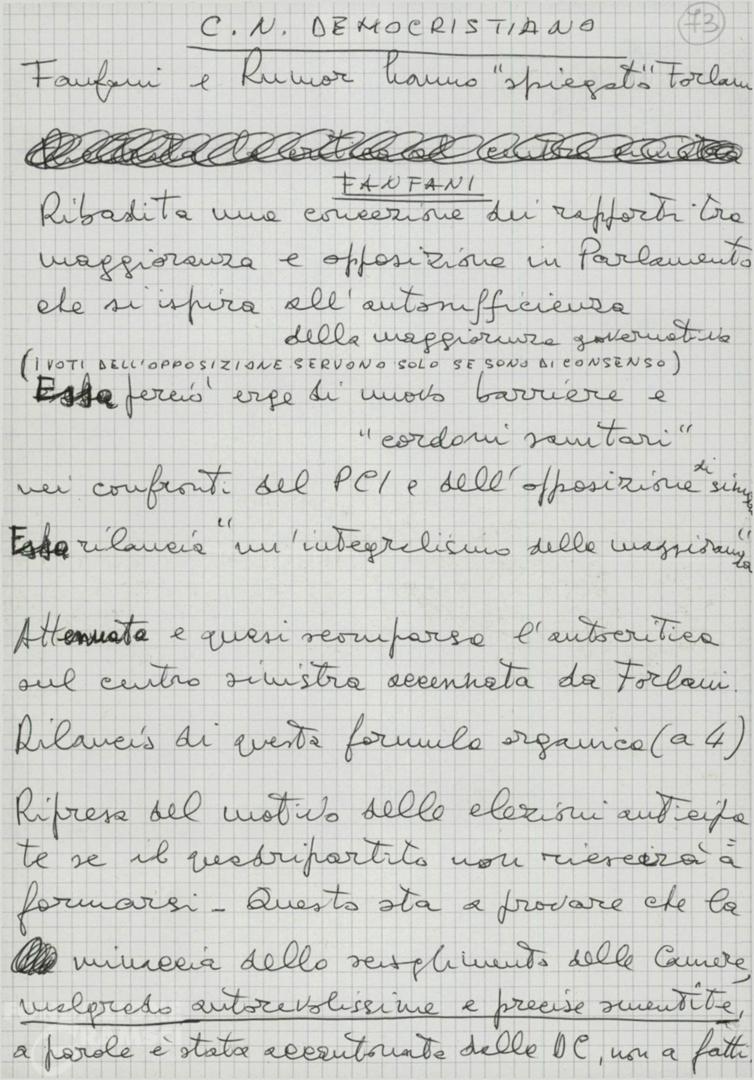 C. N. DEMOCRISTIANO
73
Fanfani e Rumor hanno "spiegato" Forlani
FANFANI
Ribadita una concezione dei rapporti tra
maggioranza e opposizione in Parlamento
che si ispira all'autosufficienza
della maggioranza governativa
(I VOTI DELL'OPPOSIZIONE SERVONO SOLO SE SONO DI CONSENSO)
Essa perciò erge di nuovo barriere e
"cordoni sanitari"
nei confronti del PCI e dell'opposizione di sinistra
Essa rilancia "un'integralismo della maggioranza"
Attenuata e quasi scomparsa l'autocritica
sul centro sinistra accennata da Forlani.
Rilancio di questa formula organica (a 4)
Ripresa del motivo delle elezioni anticipa
te se il quadripartito non riescirà a
formarsi - Questo sta a provare che la
minaccia dello scioglimento delle Camere,
malgrado autorevolissime e precise smentite,
a parole è stata accantonata dalla DC, non a fatti